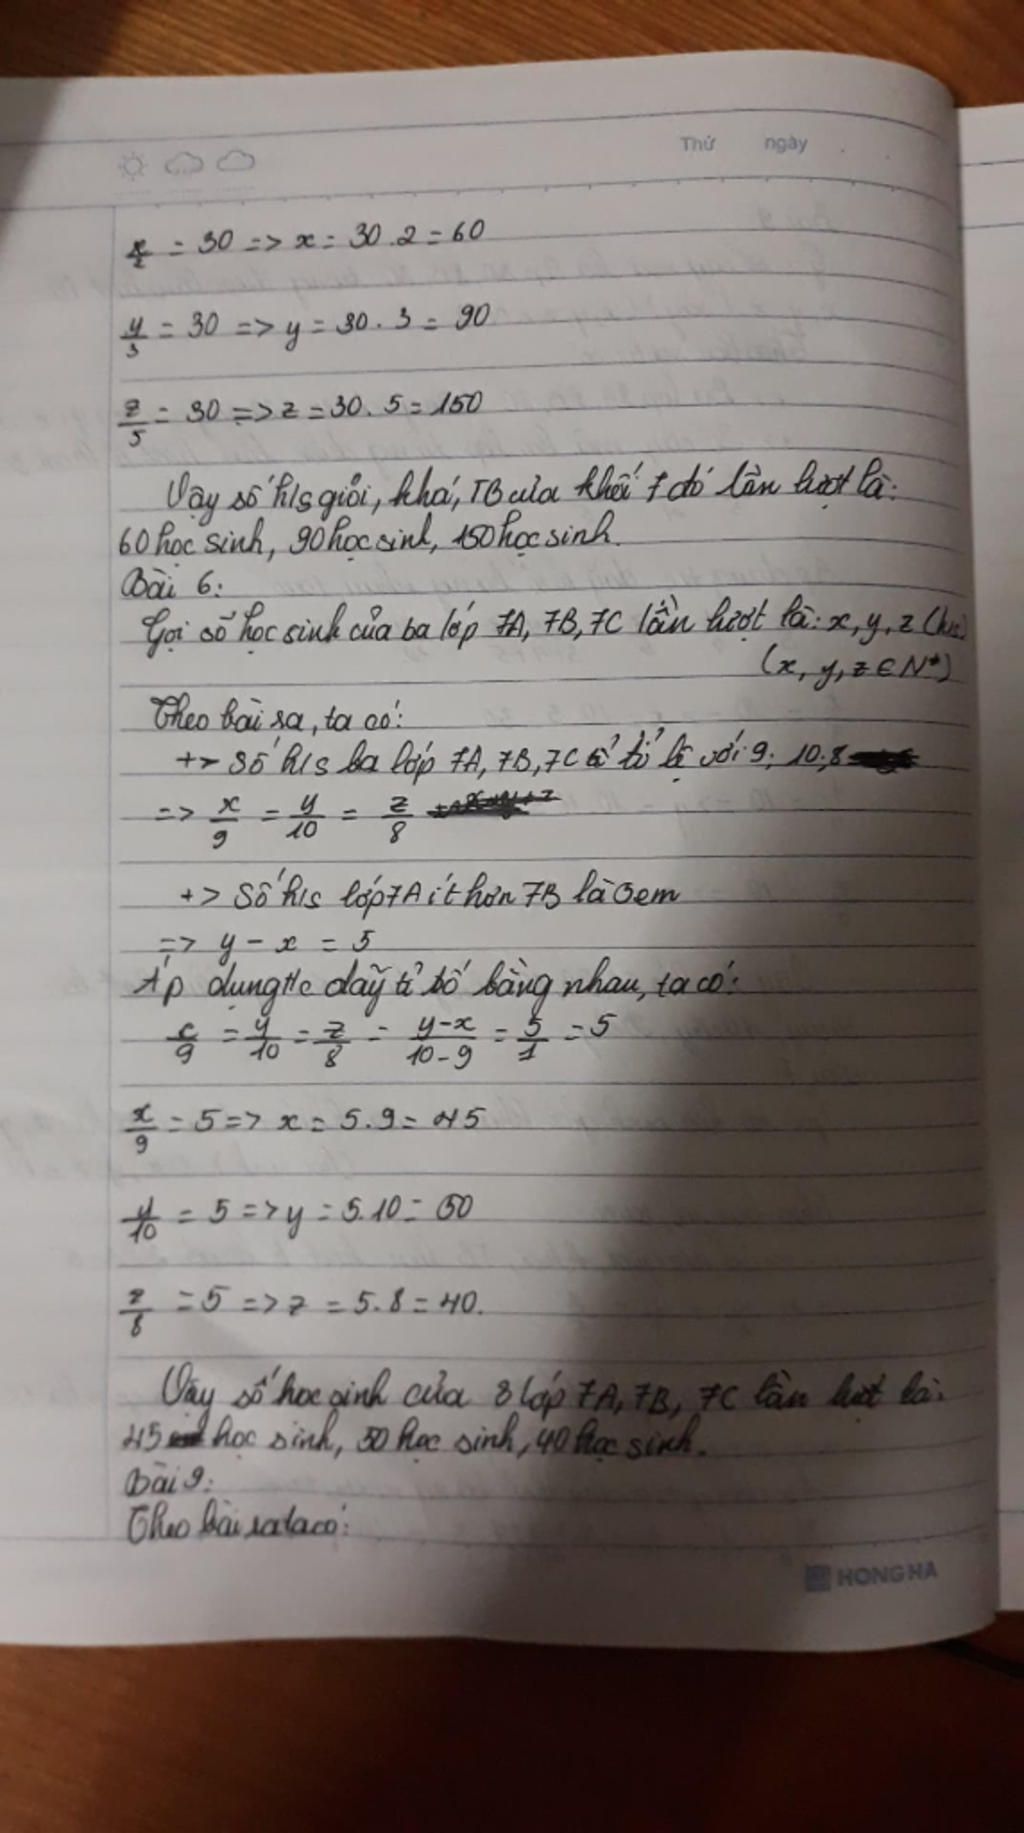 Thứ ngày
x/2 = 30 => x = 30.2 = 60
y/3 = 30 => y = 30.3 = 90
z/5 = 30 => z = 30.5 = 150
Vậy số h/s giỏi, khá, TB của khối 7 đó lần lượt là:
60 học sinh, 90 học sinh, 150 học sinh.
Bài 6:
Gọi số học sinh của ba lớp 7A, 7B, 7C lần lượt là: x, y, z (h/s)
(x, y, z ∈ N*)
Theo bài ra, ta có:
+> Số h/s ba lớp 7A, 7B, 7C tỉ lệ với 9; 10; 8
=> x/9 = y/10 = z/8
+> Số h/s lớp 7A ít hơn 7B là 5 em
=> y - x = 5
Áp dụng t/c dãy tỉ số bằng nhau, ta có:
x/9 = y/10 = z/8 = y-x/10-9 = 5/1 = 5
x/9 = 5 => x = 5.9 = 45
y/10 = 5 => y = 5.10 = 50
z/8 = 5 => z = 5.8 = 40.
Vậy số học sinh của 3 lớp 7A, 7B, 7C lần lượt là:
45 học sinh, 50 học sinh, 40 học sinh.
Bài 9:
Theo bài ra ta có:
HONG HA